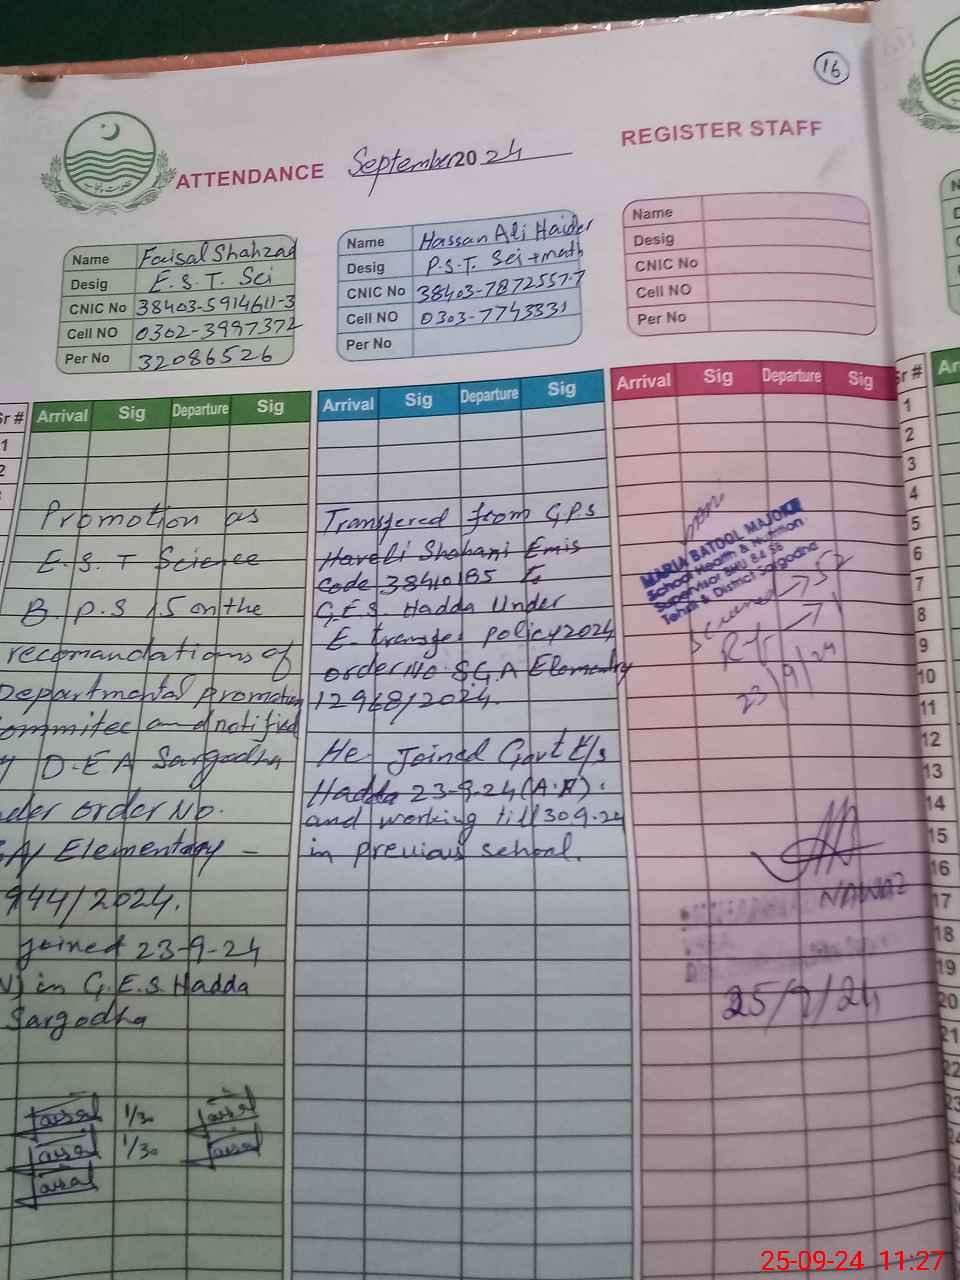 16
ATTENDANCE September 2024 REGISTER STAFF
Name Faisal Shahzad
Desig E.S.T. Sci
CNIC No 38403-5914611-3
Cell NO 0302-3997372
Per No 32086526
Name Hassan Ali Haider
Desig P.S.T. Sci + math
CNIC No 38403-7872557-7
Cell NO 0303-7743331
Per No
Name
Desig
CNIC No
Cell NO
Per No
Sr # Arrival Sig Departure Sig
1
2
Promotion as
E.S.T Science
B.P.S 15 on the
recomandations of
Departmental promotion
committee and notified
D.E.A Sargodha
order No.
Elementary -
944/2024.
joined 23-9-24
in G.E.S. Hadda
Sargodha
Faisal 1/30 Faisal
Faisal 1/30 Faisal
Faisal
Arrival Sig Departure Sig
Transfered from G.P.S
Haveli Shahani Emis
Code 38410185 To
G.E.S. Hadda Under
E-transfer policy 2024
order No. S.G.A Elementry
12968/2024.
He Joined Govt E/s
Hadda 23-9-24 (A.N).
and working till 30.9.24
in previous school.
Arrival Sig Departure Sig
MARIA BATOOL MAJOKA
School Health & Nutrition
Supervisor BHU 84 SB
Tehsil & District Sargodha
Screened → 52
23/9/24
NAWAZ
25/9/24
Sr #
1
2
3
4
5
6
7
8
9
10
11
12
13
14
15
16
17
18
19
20
21
22
23
25-09-24 11:27